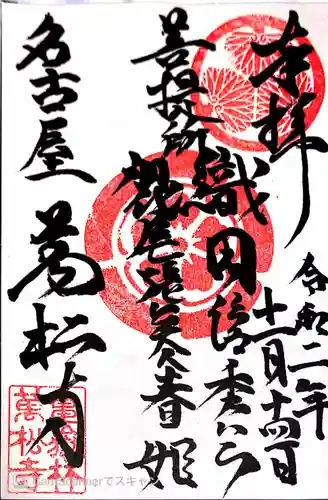 奉拝
令和二年
十一月十四日
織田信秀公
菩提所
尾張 春姫
名古屋
萬松寺
亀嶽林
萬松寺
CamScannerでスキャ